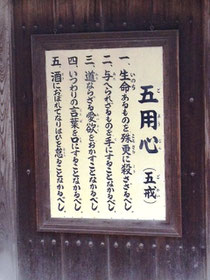 五用心（五戒）
一、生命あるものを殊更に殺さざるべし
二、与へられざるものを手にすることなかるべし
三、道ならざる愛欲をおかすことなかるべし
四、いつわりの言葉を口にすることなかるべし
五、酒におぼれてなりはひを怠ることなかるべし